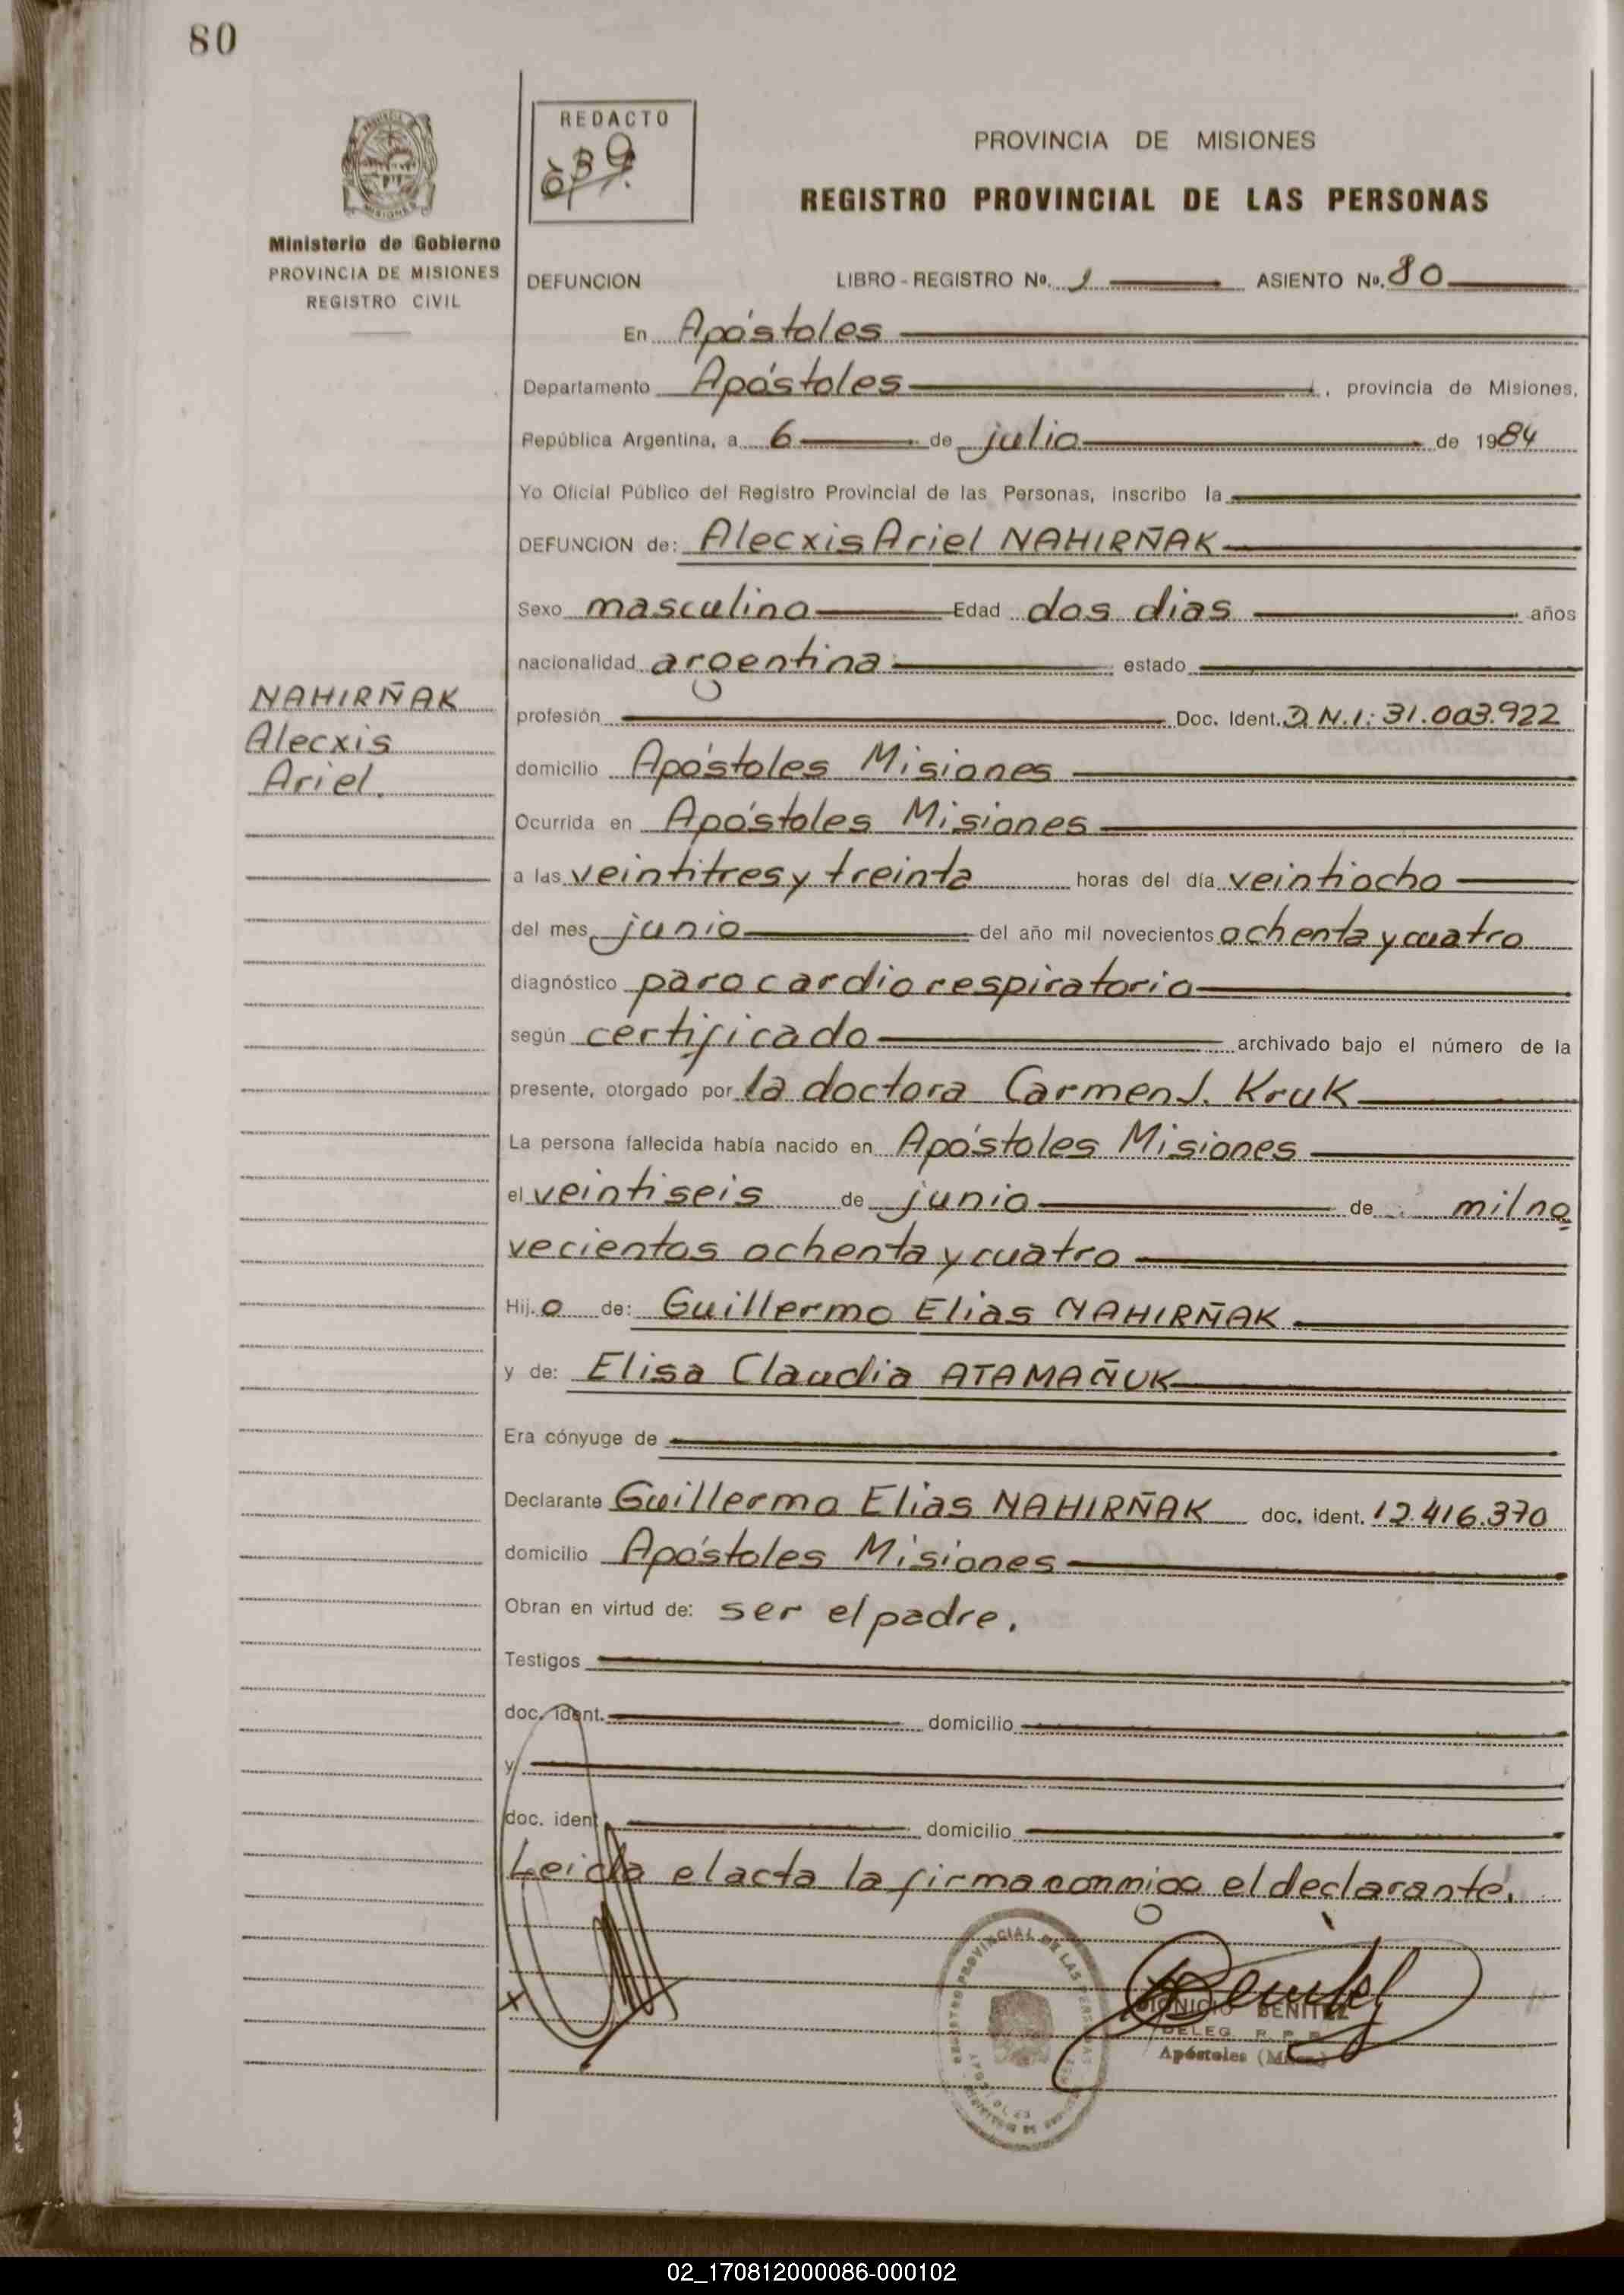 80
REDACTO
PROVINCIA DE MISIONES
REGISTRO PROVINCIAL DE LAS PERSONAS
Ministerio de Gobierno
PROVINCIA DE MISIONES
REGISTRO CIVIL
DEFUNCION LIBRO - REGISTRO Nº. 1 ASIENTO Nº. 80
En Apóstoles
Departamento Apóstoles, provincia de Misiones,
República Argentina, a 6 de julio de 1984
Yo Oficial Público del Registro Provincial de las Personas, inscribo la
DEFUNCION de: Alecxis Ariel NAHIRÑAK
Sexo masculino Edad dos dias años
nacionalidad argentina estado
NAHIRÑAK
Alecxis
Ariel.
profesión Doc. Ident. D.N.I: 31.003.922
domicilio Apóstoles Misiones
Ocurrida en Apóstoles Misiones
a las veintitres y treinta horas del día veintiocho
del mes junio del año mil novecientos ochenta y cuatro
diagnóstico paro cardiorespiratorio
según certificado archivado bajo el número de la
presente, otorgado por la doctora Carmen J. Kruk
La persona fallecida había nacido en Apóstoles Misiones
el veintiseis de junio de mil no
vecientos ochenta y cuatro
Hij.o de: Guillermo Elias NAHIRÑAK
y de: Elisa Claudia ATAMAÑUK
Era cónyuge de
Declarante Guillermo Elias NAHIRÑAK doc. ident. 12.416.370
domicilio Apóstoles Misiones
Obran en virtud de: ser el padre.
Testigos
doc. ident. domicilio
y
doc. ident domicilio
Leida el acta la firma conmigo el declarante.
REGISTRO PROVINCIAL DE LAS PERSONAS
DIONICIO BENITEZ
DELEG. R. P. P.
Apóstoles (Mnes.)
02_170812000086-000102